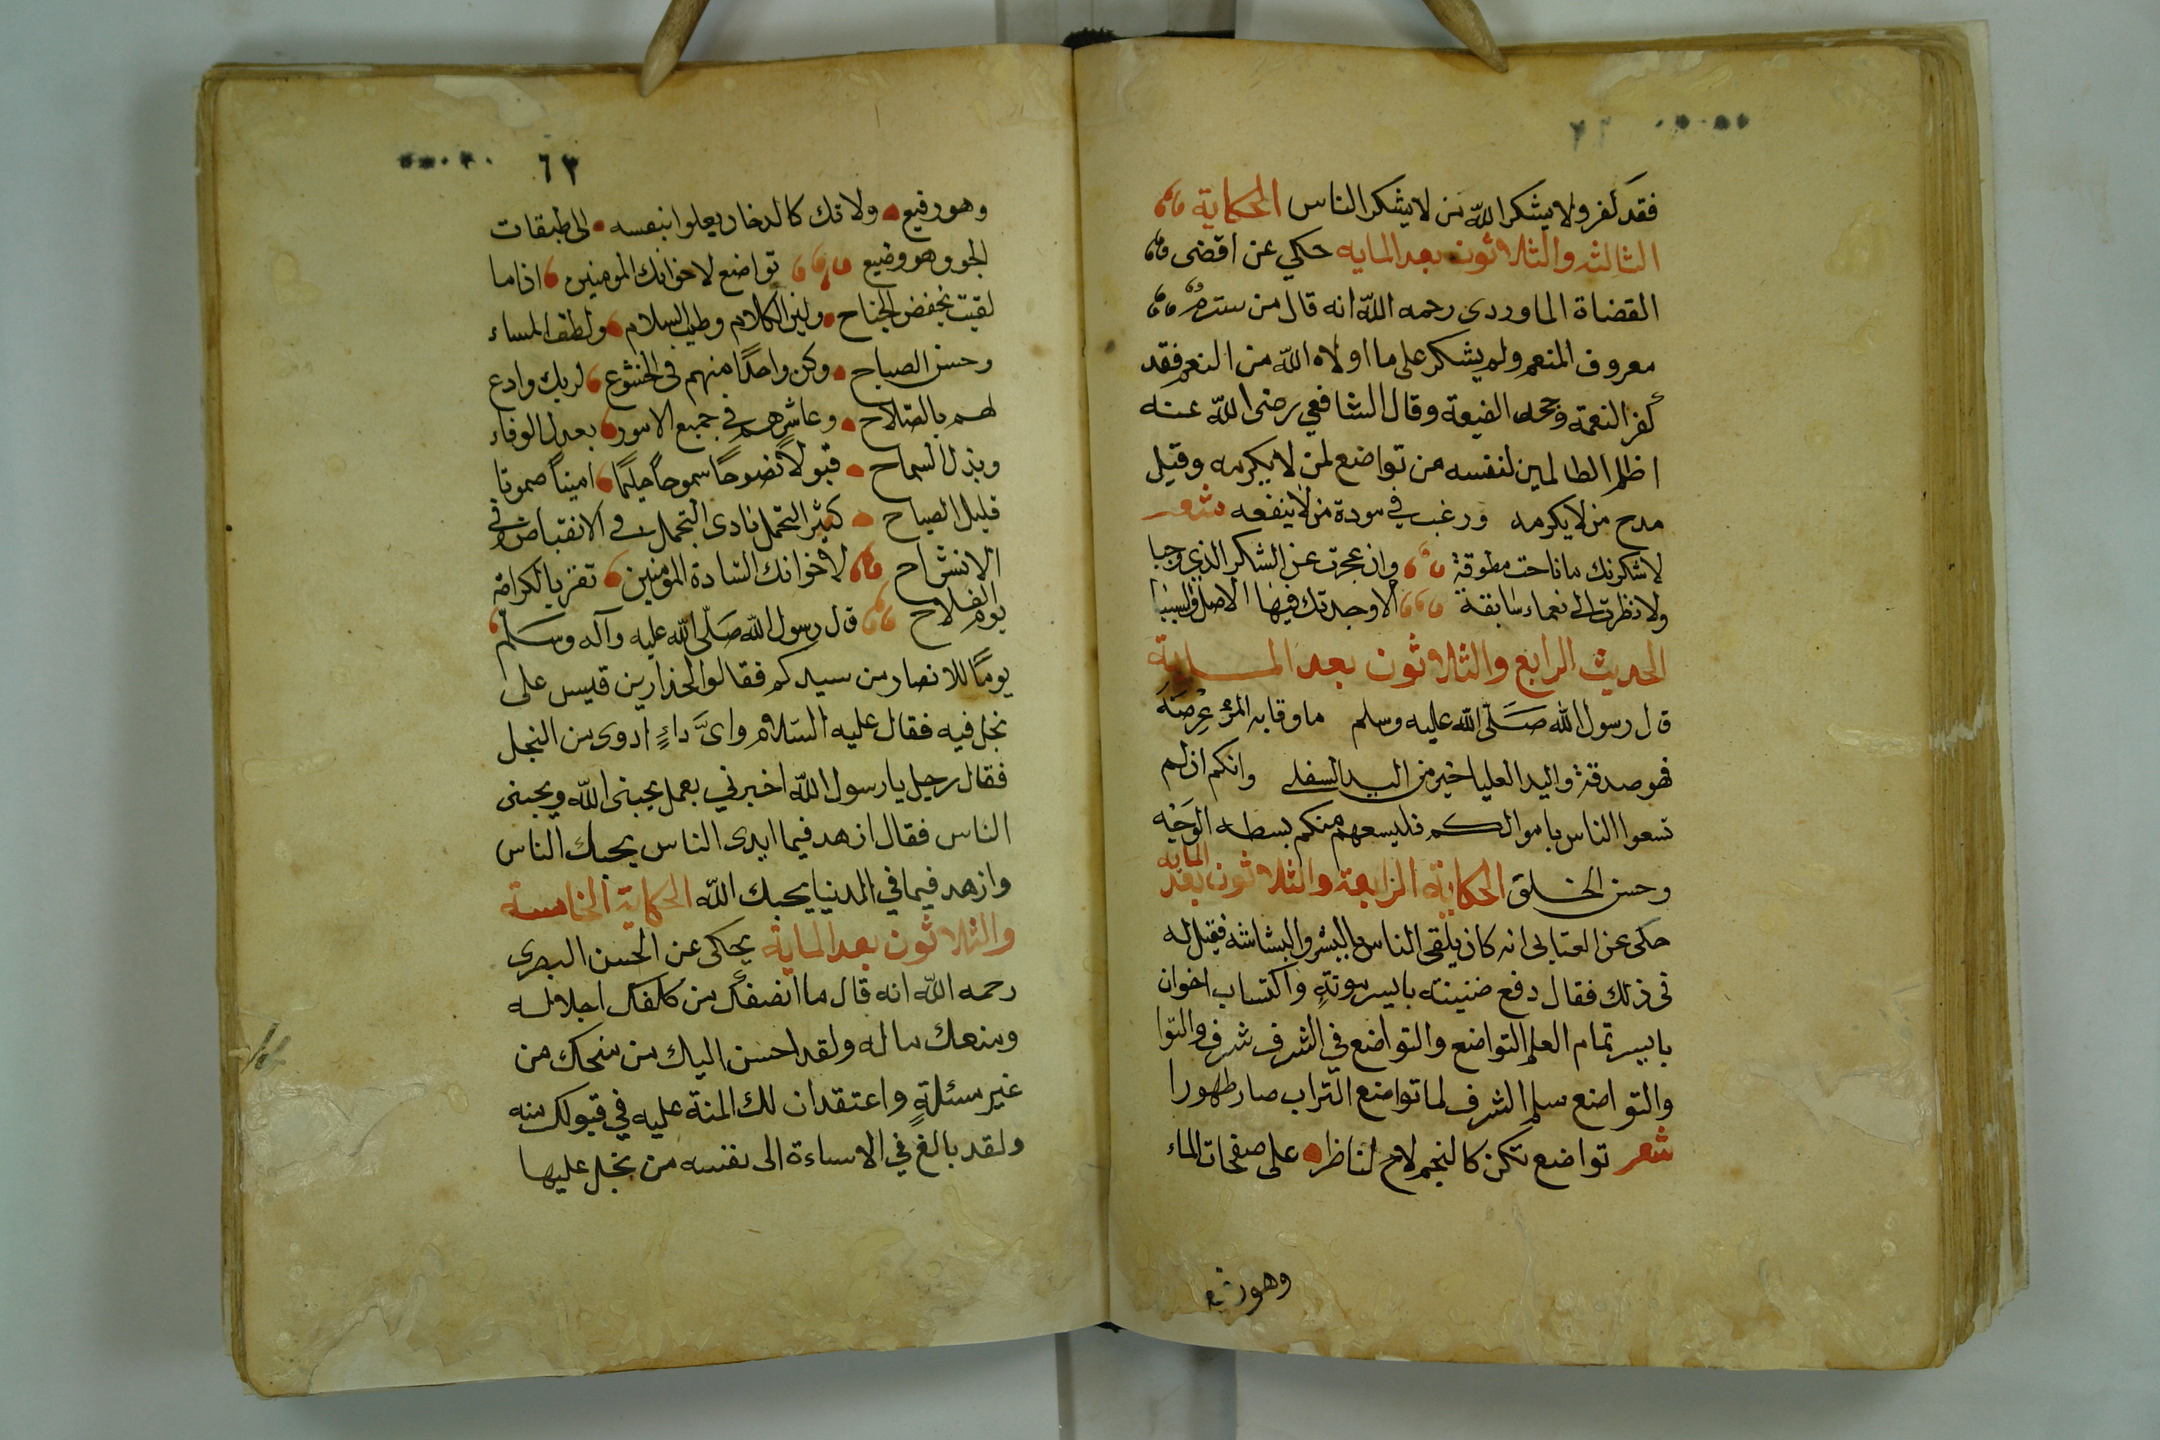 فقد كفر ولا يشكر الله من لا يشكر الناس الحكاية
الثالثه والثلاثون بعد المايه حكي عن اقضى
القضاة الماوردي رحمه الله انه قال من ستره
معروف المنعم ولم يشكر على ما اولاه الله من النعم فقد
كفر النعمة وجحد الضيعة وقال الشافعي رضى الله عنه
اظلم الظالمين لنفسه من تواضع لمن لا يكرمه وقيل
مدح من لا يكرمه ورغب في مودة من لا ينفعه شعر
لاشكرنك ما ناحت مطوقة وان عجزت عن الشكر الذي وجبا
ولا نظرت الى نعماء سابقة الا وجدتك فيها الاصل والسببا
الحديث الرابع والثلاثون بعد المايه
قال رسول الله صلى الله عليه وسلم ما وقا به المرؤ عرضه
فهو صدقة واليد العليا خير من اليد السفلى وانكم ان لم
تسعوا الناس باموالكم فليسعهم منكم بسطه الوجه
وحسن الخلق الحكاية الرابعة والثلاثون بعد المايه
حكى عن العتابى انه كان يلقى الناس بالبشر والبشاشه فقيل له
فى ذلك فقال دفع ضنينته بايسر موتة واكتساب اخوان
بايسر تمام العلم التواضع والتواضع في الشرف شرف والتوا
والتواضع سلم الشرف لما تواضع التراب صار طهورا
شعر تواضع تكن كالنجم لاح لناظر على صفحات الماء
وهو رفيع
٦٣
وهو رفيع ولا تك كالدخان يعلوا بنفسه الى طبقات
الجو وهو وضيع تواضع لاخوانك المومنين اذا ما
لقيت بخفض الجناح ولين الكلام وطيب السلام ولطف المساء
وحسن الصباح وكن واحدًا منهم فى الخشوع لربك وادع
لهم بالصلاح وعاشرهم في جميع الامور بعدل الوفاء
وبذل السماح قبولا نضوحًا سموحًا حليمًا امينًا صموتا
قليل الصياح كثير التحمل نادى التجمل فى الانقباض وفى
الانشراح لاخوانك السادة المؤمنين تفز بالكرامة
يوم الفلاح قال رسول الله صلى الله عليه وآله وسلم
يومًا للانصار من سيدكم فقالوا الحذار بن قيس على
نجل فيه فقال عليه السلام واىّ داءٍ ادوى من النجل
فقال رجل يا رسول الله اخبرني بعمل يحبنى الله ويحبنى
الناس فقال ازهد فيما ايدى الناس يحبك الناس
وازهد فيما في الدنيا يحبك الله الحكاية الخامسة
والثلاثون بعد الماية يحكى عن الحسن البصرى
رحمه الله انه قال ما انصفك من كلفك اجلاله
ومنعك ماله ولقد احسن اليك من منحك من
غير مسئلةٍ واعتقد ان لك المنة عليه في قبولك منه
ولقد بالغ في الاساءة الى نفسه من بخل عليها